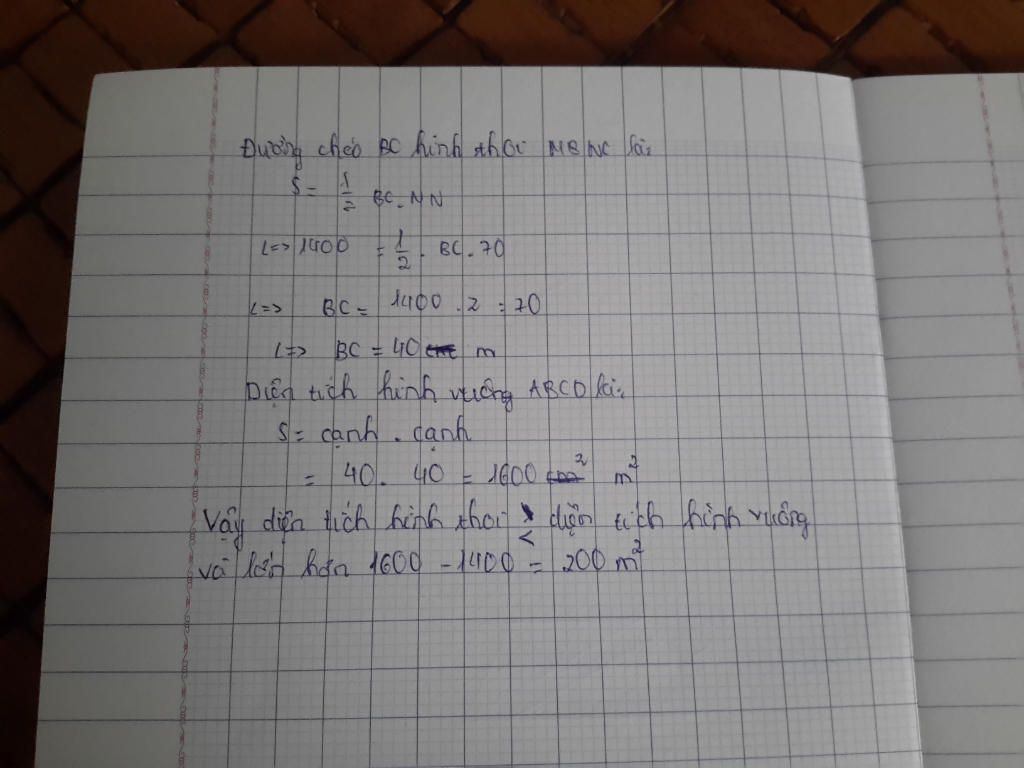 Đường chéo BC hình thoi MBNC là:
S = 1/2 BC . MN
<=> 1400 = 1/2 . BC . 70
<=> BC = 1400 . 2 : 70
<=> BC = 40 m
Diện tích hình vuông ABCD là:
S = cạnh . cạnh
= 40 . 40 = 1600 m²
Vậy diện tích hình thoi < diện tích hình vuông
và lớn hơn 1600 - 1400 = 200 m²